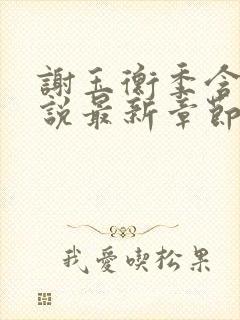 謝玉衡季含
說最新章節
我愛喫松果